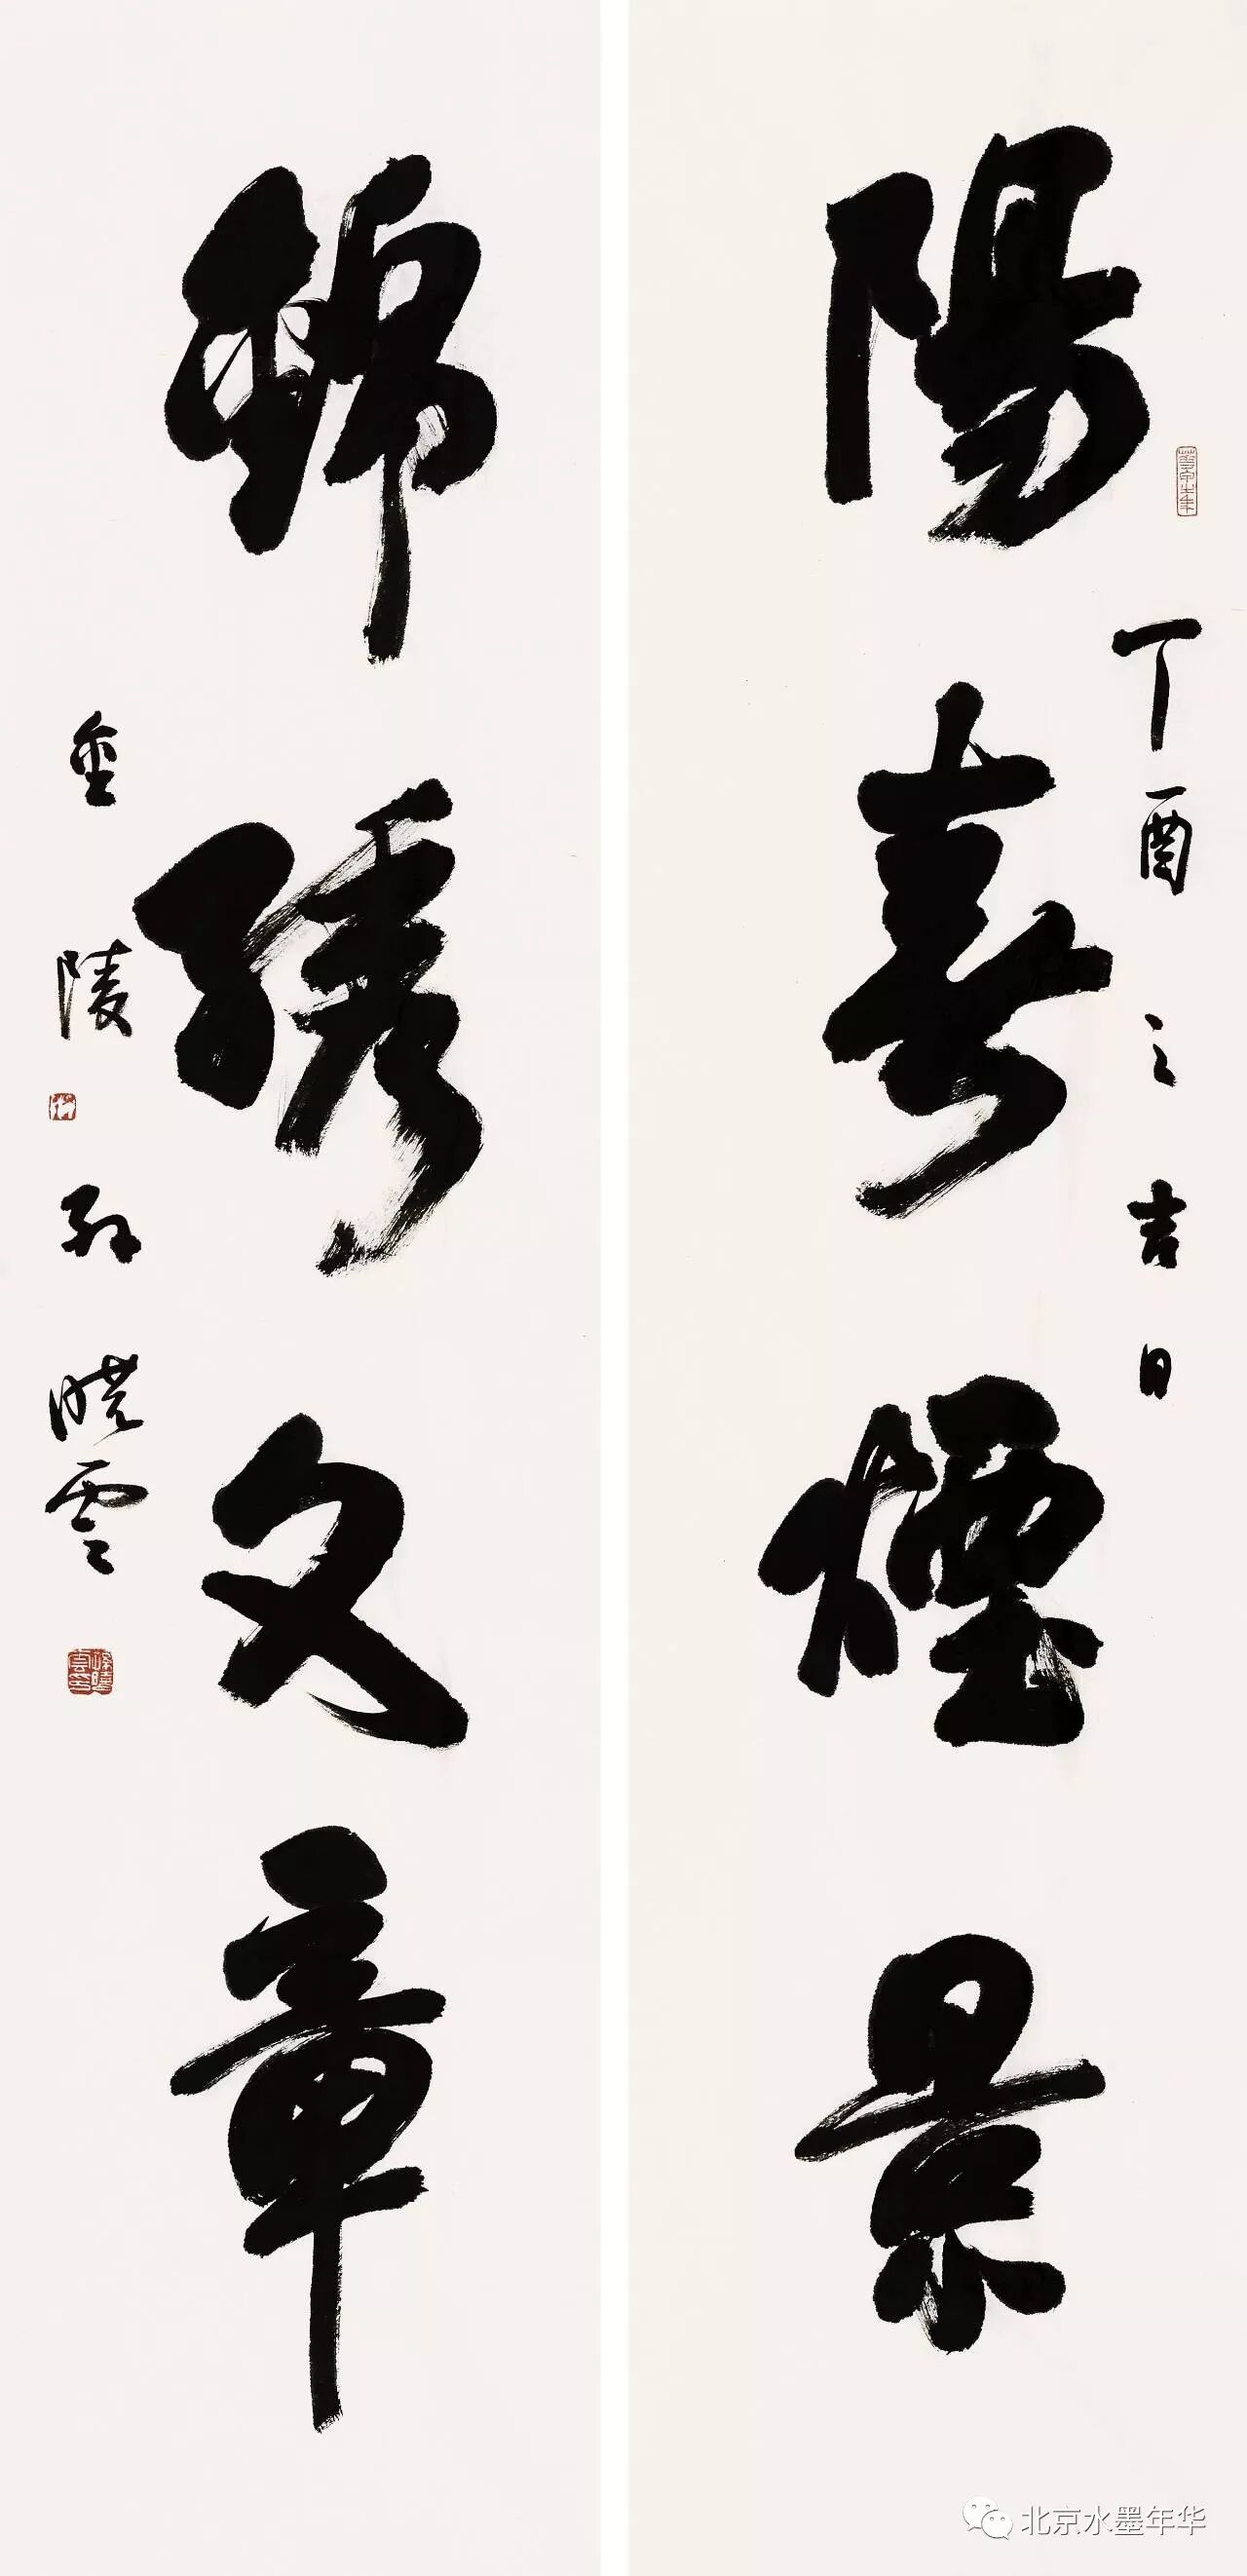 陽春煙景
丁酉之吉日
錦繡文章
金陵孫曉雲
北京水墨年华